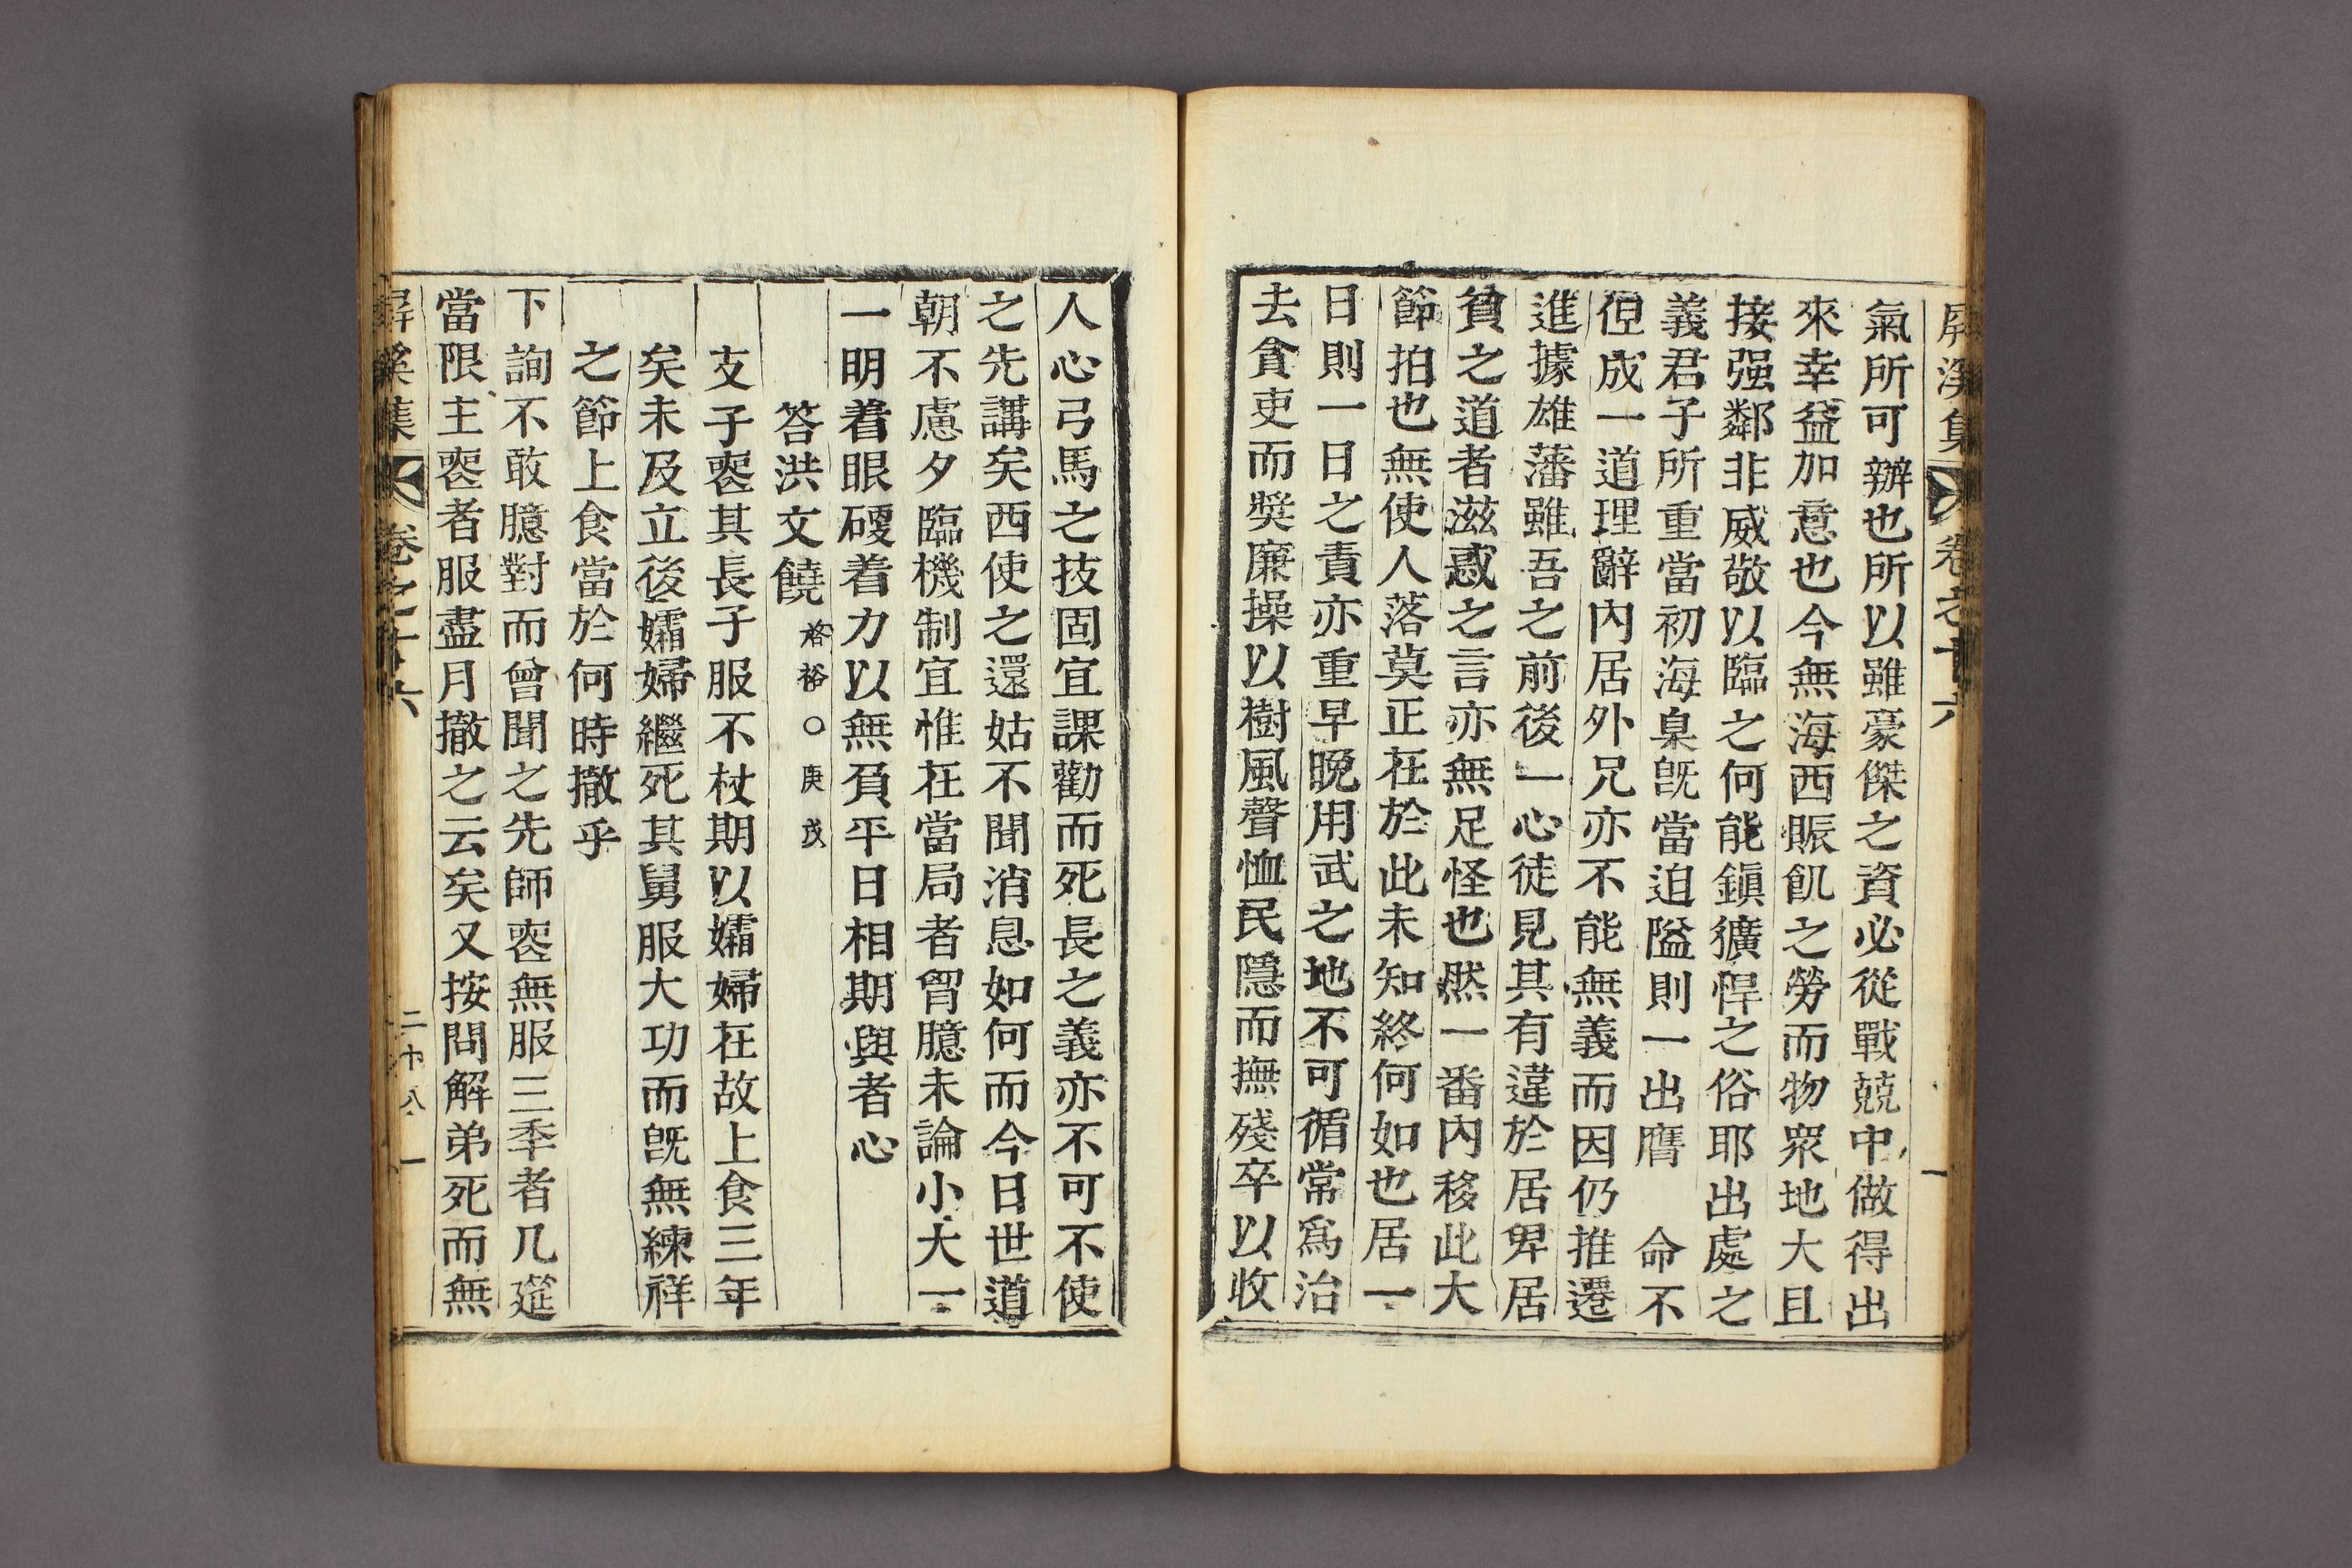 屛溪集 卷之十六 一
氣所可辦也所以雖豪傑之資必從戰兢中做得出
來幸益加意也今無海西賑飢之勞而物衆地大且
接强鄰非威敬以臨之何能鎭獷悍之俗耶出處之
義君子所重當初海臬旣當迫隘則一出膺 命不
但成一道理辭內居外兄亦不能無義而因仍推遷
進據雄藩雖吾之前後一心徒見其有違於居卑居
貧之道者滋惑之言亦無足怪也然一番內移此大
節拍也無使人落莫正在於此未知終何如也居一
日則一日之責亦重早晩用武之地不可循常爲治
去貪吏而奬廉操以樹風聲恤民隱而撫殘卒以收
人心弓馬之技固宜課勸而死長之義亦不可不使
之先講矣西使之還姑不聞消息如何而今日世道
朝不慮夕臨機制宜惟在當局者胷臆未論小大一
一明着眼硬着力以無負平日相期與者心
答洪文饒 啓裕○庚戌
支子喪其長子服不杖期以孀婦在故上食三年
矣未及立後孀婦繼死其舅服大功而旣無練祥
之節上食當於何時撤乎
下詢不敢臆對而曾聞之先師喪無服三年者几筵
當限主喪者服盡月撤之云矣又按問解弟死而無
屛溪集 卷之十六 二十八 一